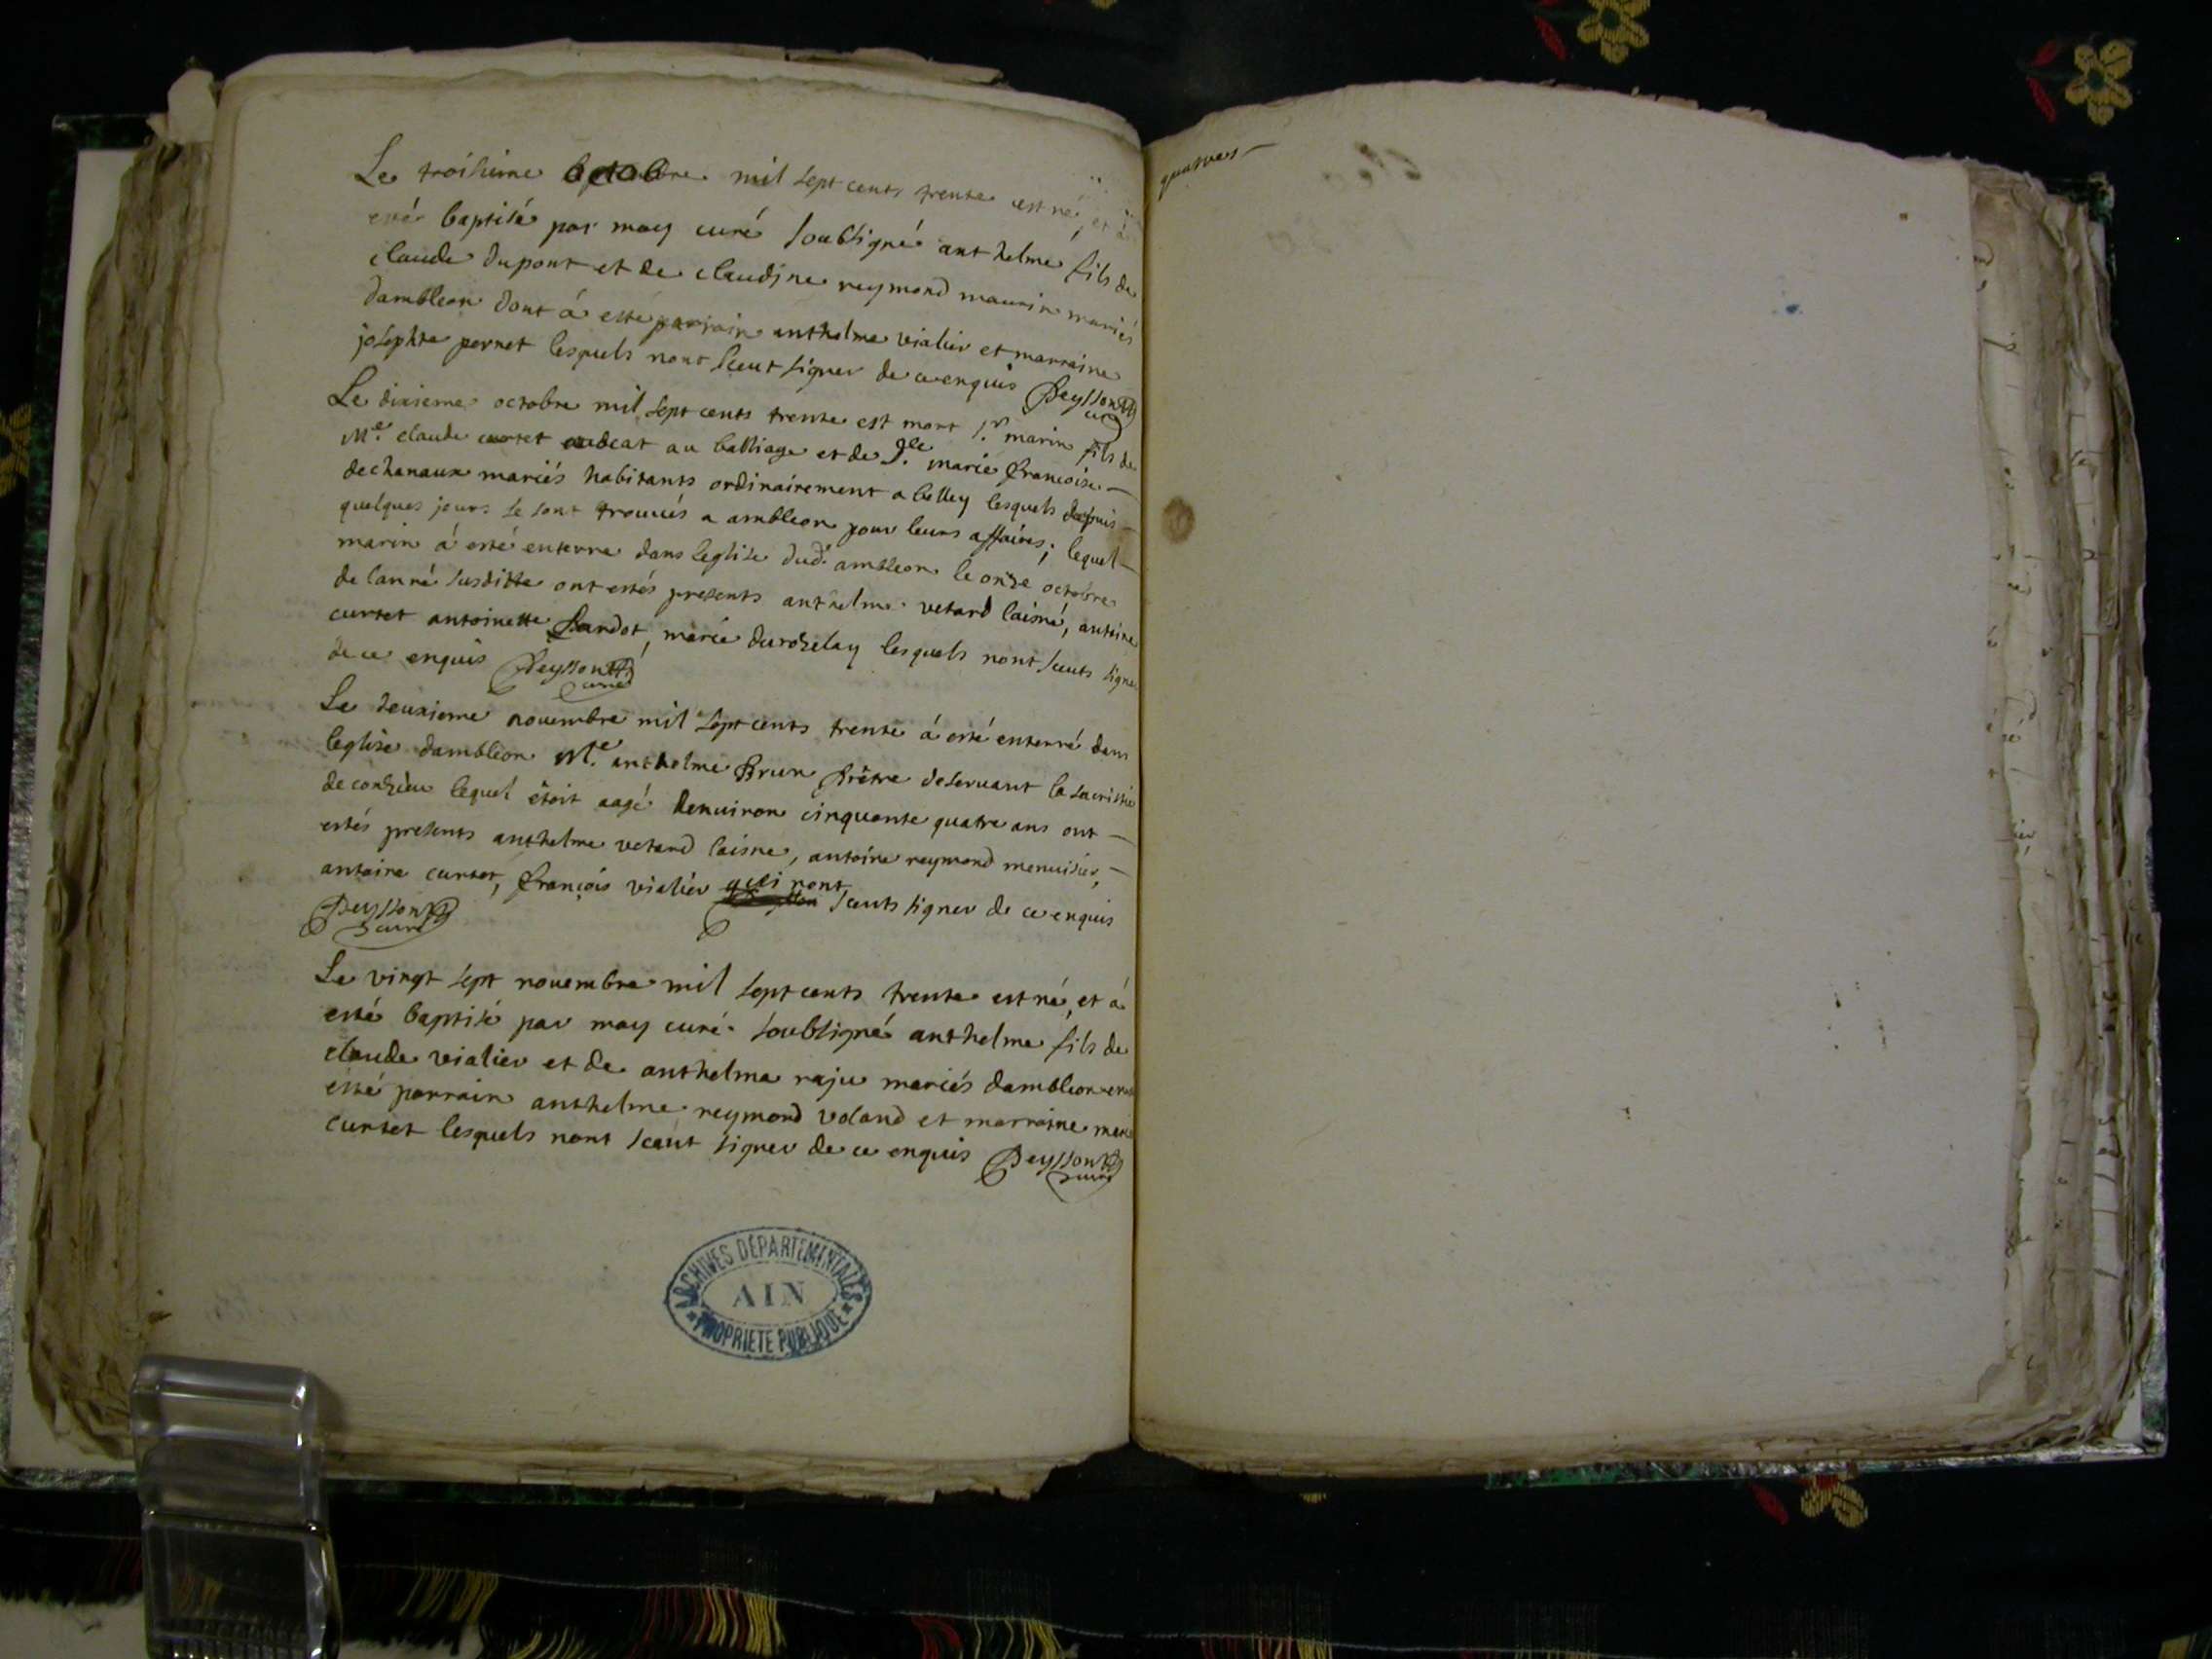 Le troisieme octobre mil sept cents trente est né, et à
esté baptisé par moy curé soubsigné anthelme fils de
claude dupont et de claudine reymond maurin mariés
dambleon dont à esté parrain anthelme vialier et marraine
josephte pernet lesquels nont sceut signer de ce enquis Peysson
curé
Le dixieme octobre mil sept cents trente est mort Sr. marin fils de
Me. claude curtet audcat au balliage et de Dlle marie francoise
dechanaux mariés habitants ordinairement a belley lesquels depuis
quelques jours se sont trouvés a ambleon pour leurs affaires; lequel
marin à esté enterré dans leglise dud. ambleon le onze octobre
de lanné susditte ont estés presents anthelme vetard laisné, antoine
curtet antoinette Landot, marie durochelay lesquels nont sceuts signer
de ce enquis Peysson
curé
Le deuxieme novembre mil sept cents trente à esté enterré dans
leglise dambleon Me. anthelme Brun prêtre deservant la sacristie
de conzieu lequel étoit aagé denviron cinquante quatre ans ont
estés presents anthelme vetard laisne, antoine reymond menuisier,
antoine curtet, françois vialier qui nont sceuts signer de ce enquis
Peysson
curé
Le vingt sept novembre mil sept cents trente est né, et à
esté baptisé par moy curé soubsigné anthelme fils de
claude vialier et de anthelma raju mariés dambleon
esté parrain anthelme reymond voland et marraine
curtet lesquels nont sceut signer de ce enquis Peysson
curé
ARCHIVES DÉPARTEMENTALES
AIN
PROPRIÉTÉ PUBLIQUE